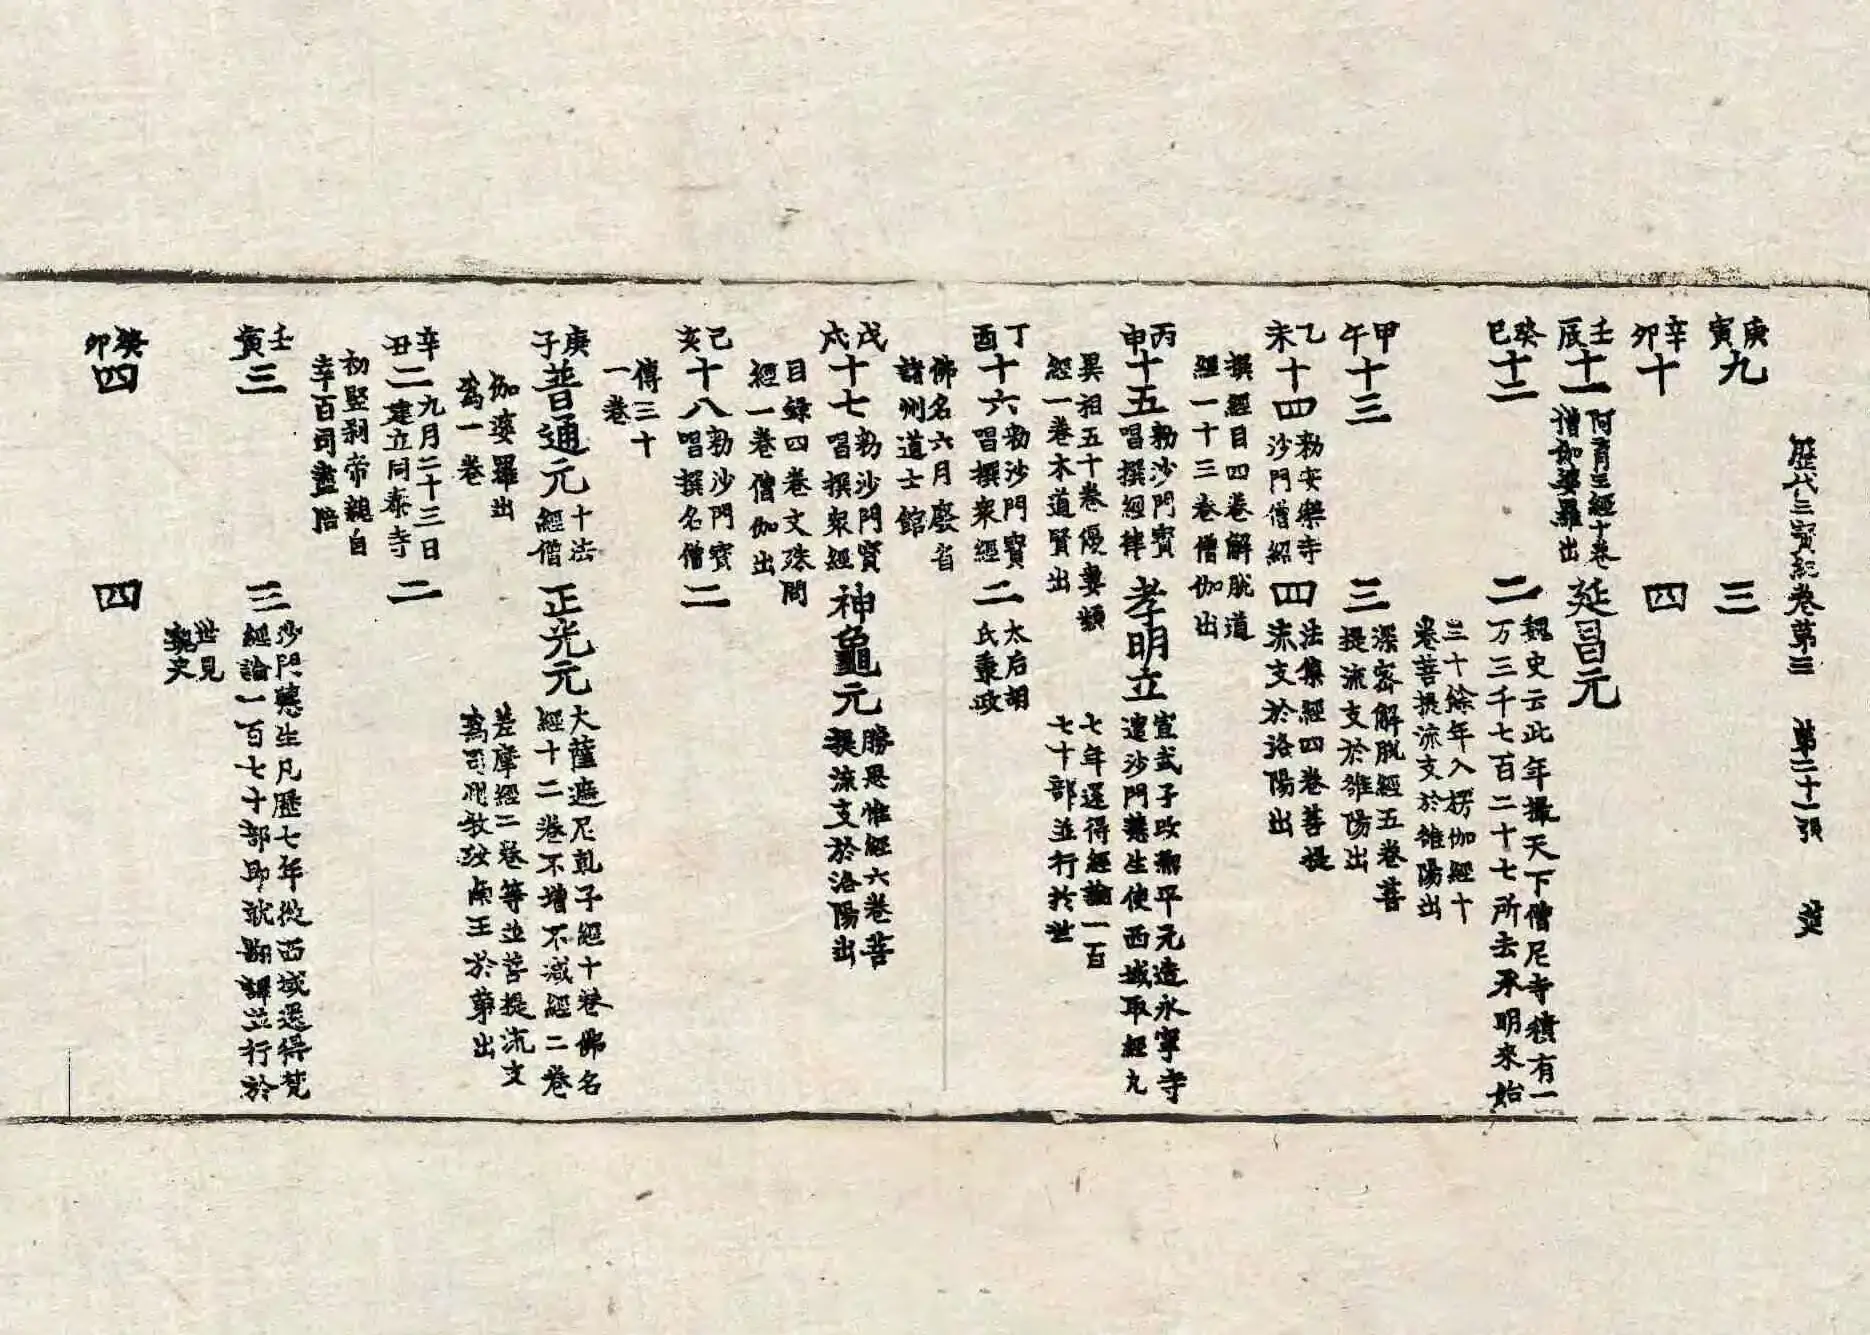 歷代三寶紀卷第三　第二十一張
庚寅九　三
辛卯十　四
壬辰十一
阿育王經十卷
僧伽婆羅出
延昌元
癸巳十二
二
魏史云此年據天下僧尼寺積有一
万三千七百二十七所去承明來始
三十餘年入楞伽經十
卷菩提流支於雒陽出
甲午十三
三
深密解脫經五卷菩
提流支於雒陽出
乙未十四
勅安樂寺
沙門僧紹
撰經目四卷解脫道
經一十三卷僧伽出
四
法集經四卷菩提
流支於洛陽出
丙申十五
勅沙門寶
唱撰經律
異相五十卷優婁頻
經一卷木道賢出
孝明立
宣武子改熙平元造永寧寺
遣沙門慧生使西域取經凡
七年還得經論一百
七十部並行於世
丁酉十六
勅沙門寶
唱撰眾經
佛名六月廢省
諸州道士館
二
太后胡
氏秉政
戊戌十七
勅沙門寶
唱撰眾經
目錄四卷文殊問
經一卷僧伽出
神龜元
勝思惟經六卷菩
提流支於洛陽出
己亥十八
勅沙門寶
唱撰名僧
傳三十
一卷
二
庚子普通元
十法
經僧
伽婆羅出
為一卷
正光元
大薩遮尼乹子經十卷佛名
經十二卷不增不減經二卷
差摩經二卷等並菩提流支
為司州牧汝南王於第出
辛丑二
九月二十三日
建立同泰寺
初竪剎帝親自
幸百司盡陪
二
壬寅三
三
沙門慧生凡歷七年從西域還得梵
經論一百七十部即就翻譯並行於
世見
魏史
癸卯四　四